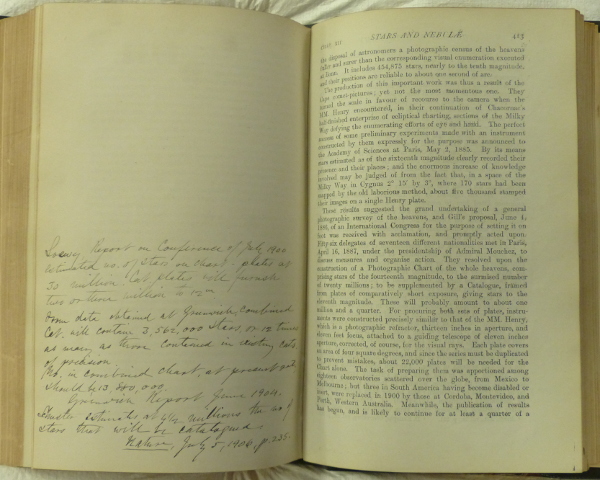 Loewy Report on Conference of July 1900
estimated no. of stars on chart-plates at
30 million. Cat. plates will furnish
two or three million to
From data obtained at Greenwich, combined
Cat. will contain 3,562,000 stars, or 12 times
as many as those contained in existing cats.
of precision
No. in combined chart, at present
should be 13,
Greenwich Report June 1904.
estimates at 4½ millions the no. of
stars that will be catalogued.
Nature, July 5, 1906, p. 235.
STARS AND NEBULÆ. 423
disposal of astronomers a photographic census of the heavens
fuller and surer than the corresponding visual enumeration executed
at Bonn. It includes 454,875 stars, nearly to the tenth magnitude,
and their positions are reliable to about one second of arc.
The production of this important work was thus a result of the
Cape comet-pictures; yet not the most momentous one. They
turned the scale in favour of recourse to the camera when the
MM. Henry encountered, in their continuation of Chacornac's
half-finished enterprise of ecliptical charting, sections of the Milky
Way defying the enumerating efforts of eye and hand. The perfect
success of some preliminary experiments made with an instrument
constructed by them expressly for the purpose was announced to
the Academy of Sciences at Paris, May 2, 1885. By its means
stars estimated as of the sixteenth magnitude clearly recorded their
presence and their places; and the enormous increase of knowledge
involved may be judged of from the fact that, in a space of the
Milky Way in Cygnus 2° 15' by 3°, where 170 stars had been
mapped by the old laborious method, about five thousand stamped
their images on a single Henry plate.
These results suggested the grand undertaking of a general
photographic survey of the heavens, and Gill's proposal, June 4,
1886, of an International Congress for the purpose of setting it on
foot was received with acclamation, and promptly acted upon.
Fifty-six delegates of seventeen different nationalities met in Paris,
April 16, 1887, under the presidentship of Admiral Mouchez, to
discuss measures and organise action. They resolved upon the
construction of a Photographic Chart of the whole heavens, com-
prising stars of the fourteenth magnitude, to the surmised number
of twenty millions; to be supplemented by a Catalogue, framed
from plates of comparatively short exposure, giving stars to the
eleventh magnitude. These will probably amount to about one
million and a quarter. For procuring both sets of plates, instru-
ments were constructed precisely similar to that of the MM. Henry,
which is a photographic refractor, thirteen inches in aperture, and
eleven feet focus, attached to a guiding telescope of eleven inches
aperture, corrected, of course, for the visual rays. Each plate covers
an area of four square degrees, and since the series must be duplicated
to prevent mistakes, about 22,000 plates will be needed for the
Chart alone. The task of preparing them was apportioned among
eighteen observatories scattered over the globe, from Mexico to
Melbourne; but three in South America having become disabled or
inert, were replaced in 1900 by those at Cordoba, Montevideo, and
Perth, Western Australia. Meanwhile, the publication of results
has begun, and is likely to continue for at least a quarter of a